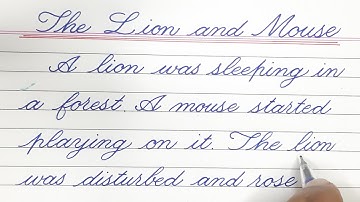 The Lion and Mouse
A lion was sleeping in
a forest. A mouse started
playing on it. The lion
was disturbed and rose